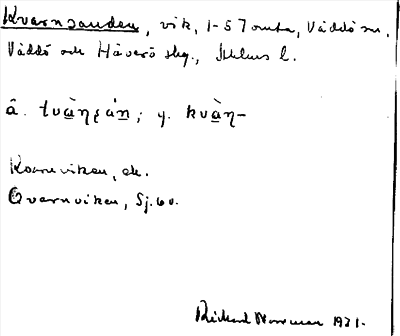 Kvarnsanden, vik, 1-57 omba, Väddö sn,
Väddö och Häverö skg., Sthlms l.
å. tvàn̥s̩án; y. kvàn-
Kvarnviken, ek.
Qvarnviken, Sj. 60.
Rickard Norrman 1931.